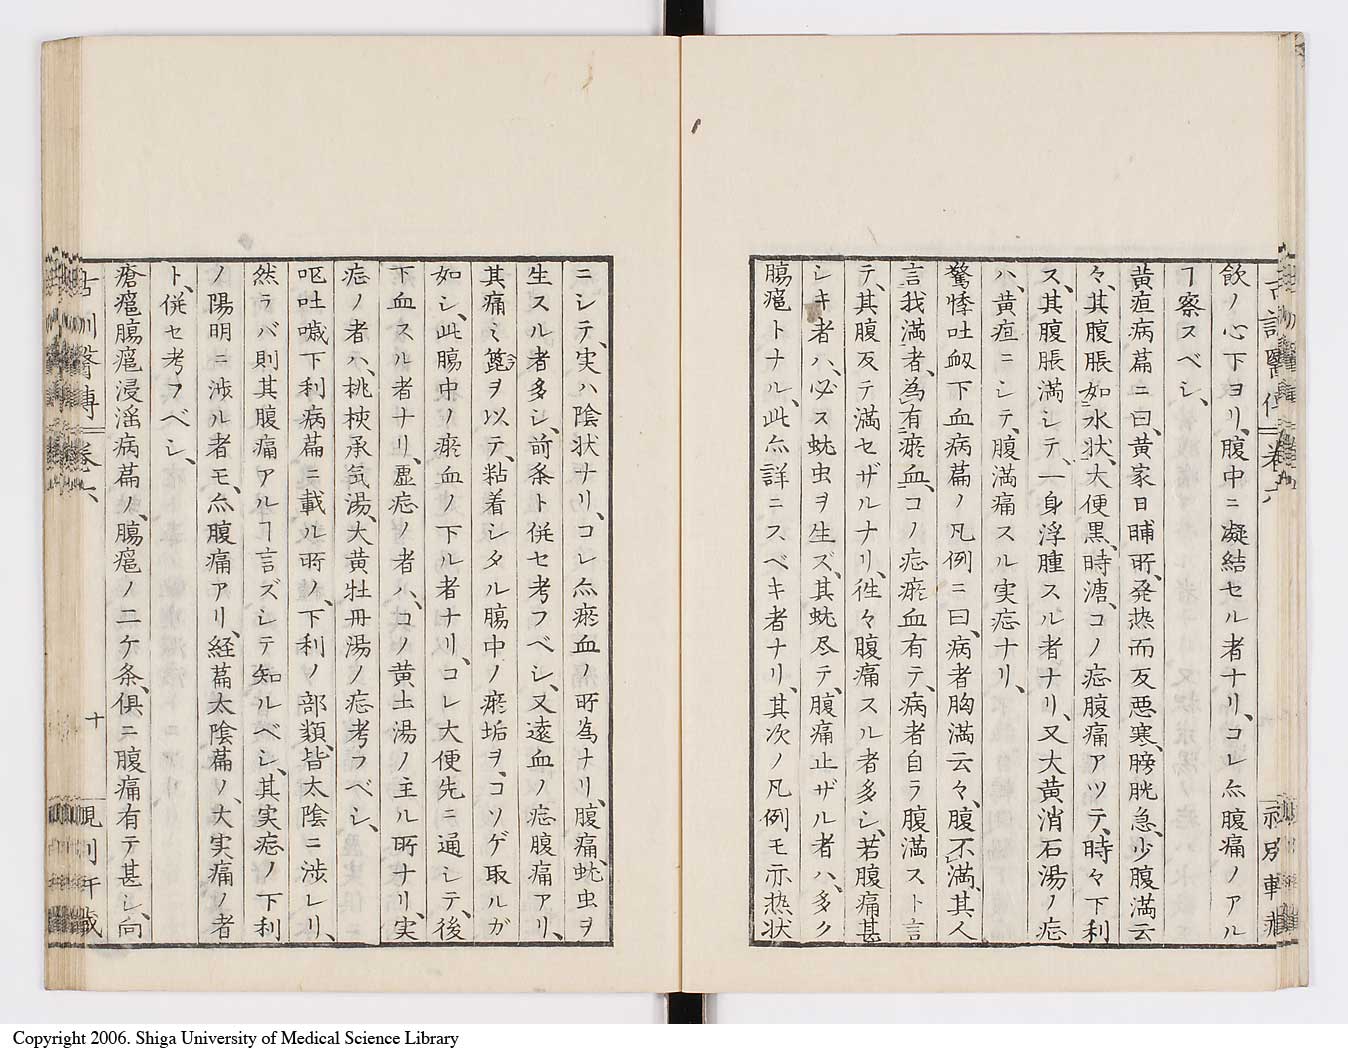 飲ノ心下ヨリ、腹中ニ凝結セル者ナリ、コレ亦腹痛ノアル
ヿ察スベシ、
黄疸病萹ニ曰、黄家日晡所、発热而反悪寒、膀胱急、少腹満云
々、其腹脹如水状、大便黒、時溏、コノ症腹痛アツテ、時々下利
ス、其腹脹満シテ、一身浮腫スル者ナリ、又大黄消石湯ノ症
ハ、黄疸ニシテ、腹満痛スル実症ナリ、
驚悸吐衂下血病萹ノ凡例ニ曰、病者胸満云々、腹不満、其人
言我満者、為有瘀血、コノ症瘀血有テ、病者自ラ腹満スト言
テ、其腹反テ満セザルナリ、徃々腹痛スル者多シ、若腹痛甚
シキ者ハ、必ス蚘虫ヲ生ズ、其蚘尽テ、腹痛止ザル者ハ、多ク
腸癰トナル、此亦詳ニスベキ者ナリ、其次ノ凡例モ亦热状
ニシテ、実ハ陰状ナリ、コレ亦瘀血ノ所為ナリ、腹痛、蚘虫ヲ
生スル者多シ、前条ト併セ考フベシ、又遠血ノ症腹痛アリ、
其痛ミ篦ヲ以テ、粘着シタル腸中ノ瘀垢ヲ、コソゲ取ルガ
如シ、此腸中ノ瘀血ノ下ル者ナリ、コレ大便先ニ通シテ、後
下血スル者ナリ、虚症ノ者ハ、コノ黄土湯ノ主ル所ナリ、実
症ノ者ハ、桃核承気湯、大黄牡丹湯ノ症考フベシ、
呕吐噦下利病萹ニ載ル所ノ、下利ノ部類、皆太陰ニ渉レリ、
然ラバ則其腹痛アルヿ言ズシテ知ルベシ、其実症ノ下利
ノ陽明ニ渉ル者モ、亦腹痛アリ、経萹太陰萹ノ、大実痛ノ者
ト、併セ考フベシ、
瘡癰腸癰浸淫病萹ノ、腸癰ノ二ケ条、倶ニ腹痛有テ甚シ、向
十